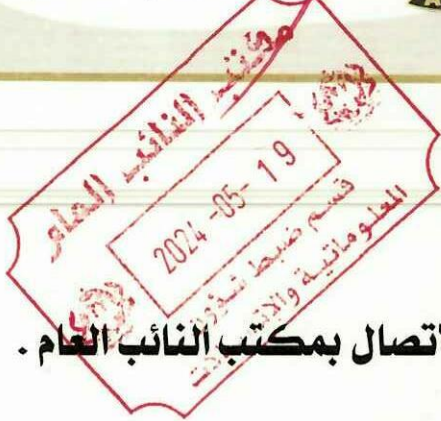 مكتب النائب العام
2024 -05- 19
قسم ضبط شؤون
المعلوماتية والاتصالات
اتصال بمكتب النائب العام .